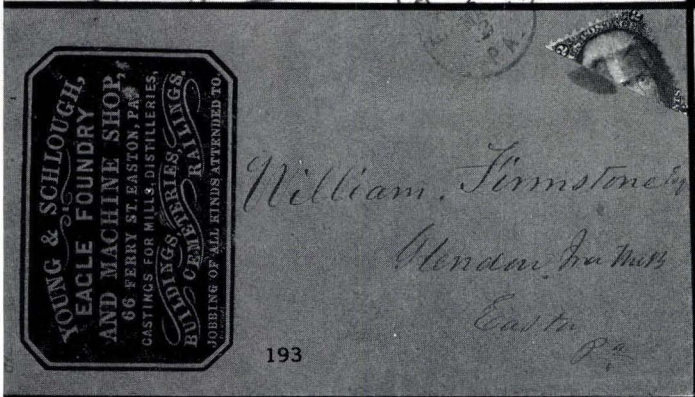 YOUNG & SCHLOUGH,
EAGLE FOUNDRY
AND MACHINE SHOP,
66 FERRY ST. EASTON, PA.
CASTINGS FOR MILLS, DISTILLERIES,
BUILDINGS, FACTORIES,
CEMETERIES, RAILINGS.
JOBBING OF ALL KINDS ATTENDED TO.
PA.
William. Firmstone Esq
Glendon, Iron
Easton
Pa
193